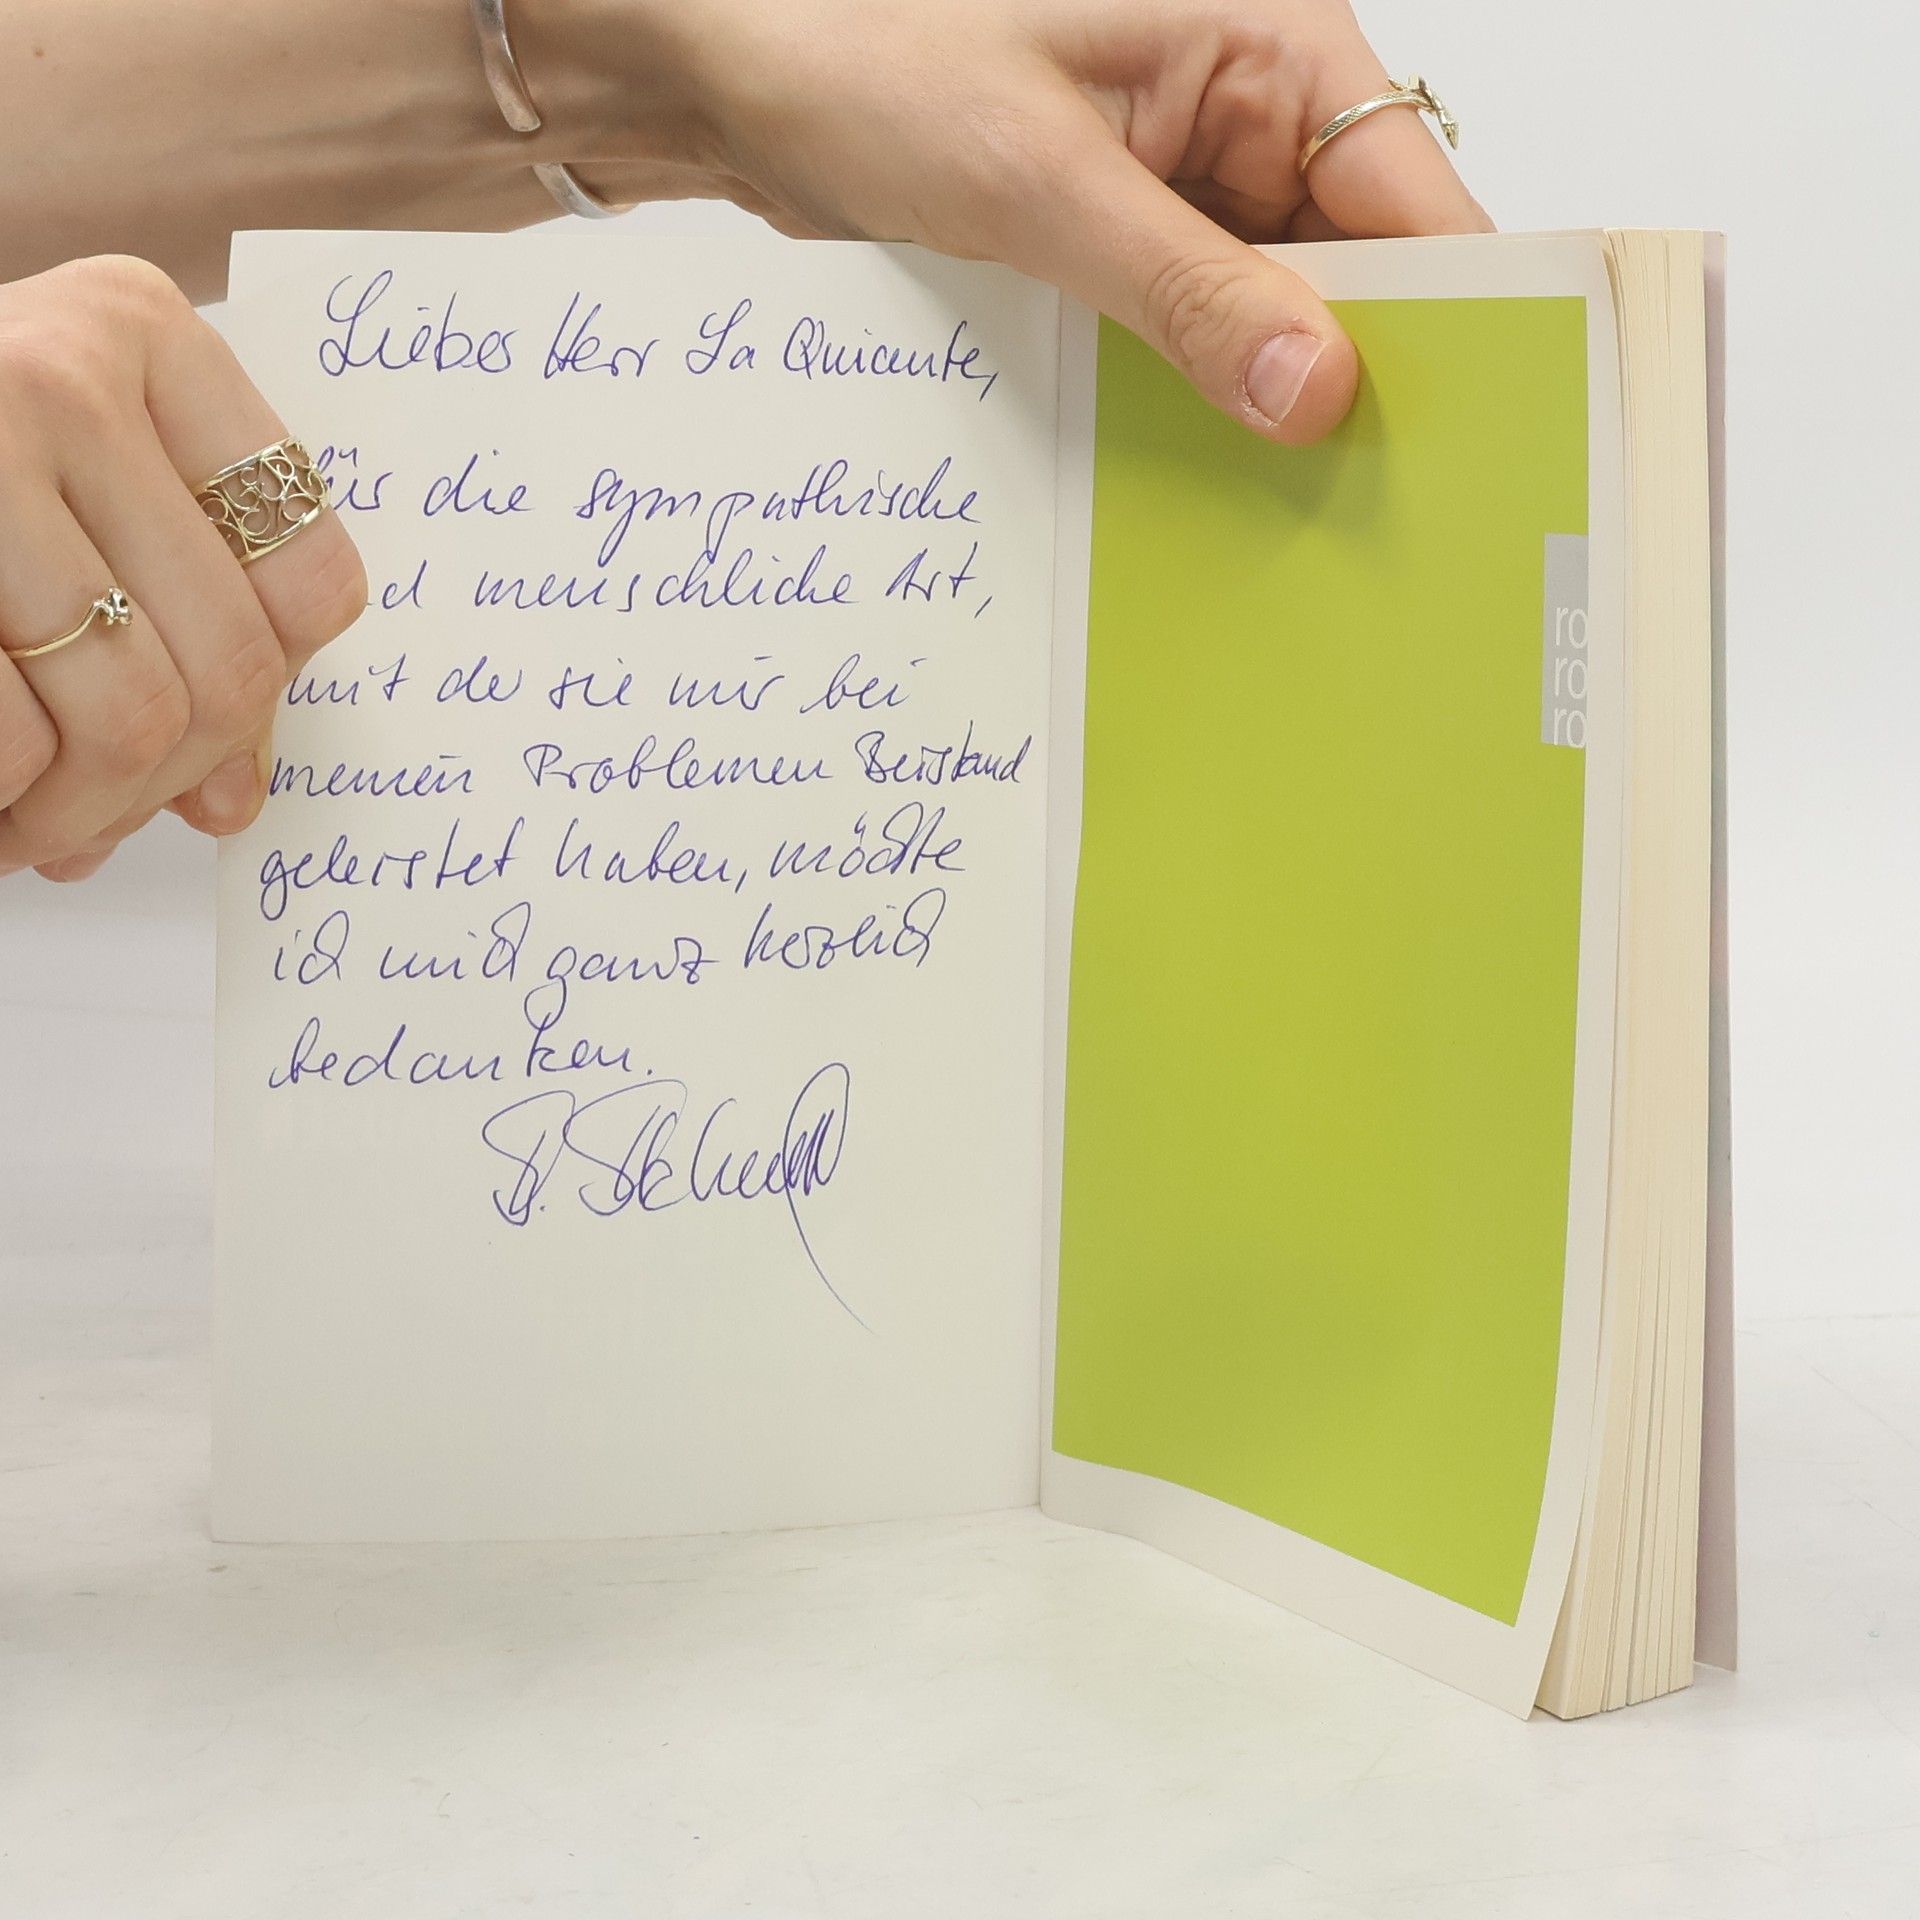 Lieber Herr La Quiante,
für die sympathische
nd menschliche Art,
mit der sie mir bei
meinen Problemen Beistand
geleistet haben, möchte
ich mich ganz herzlich
bedanken.
ro
ro
ro